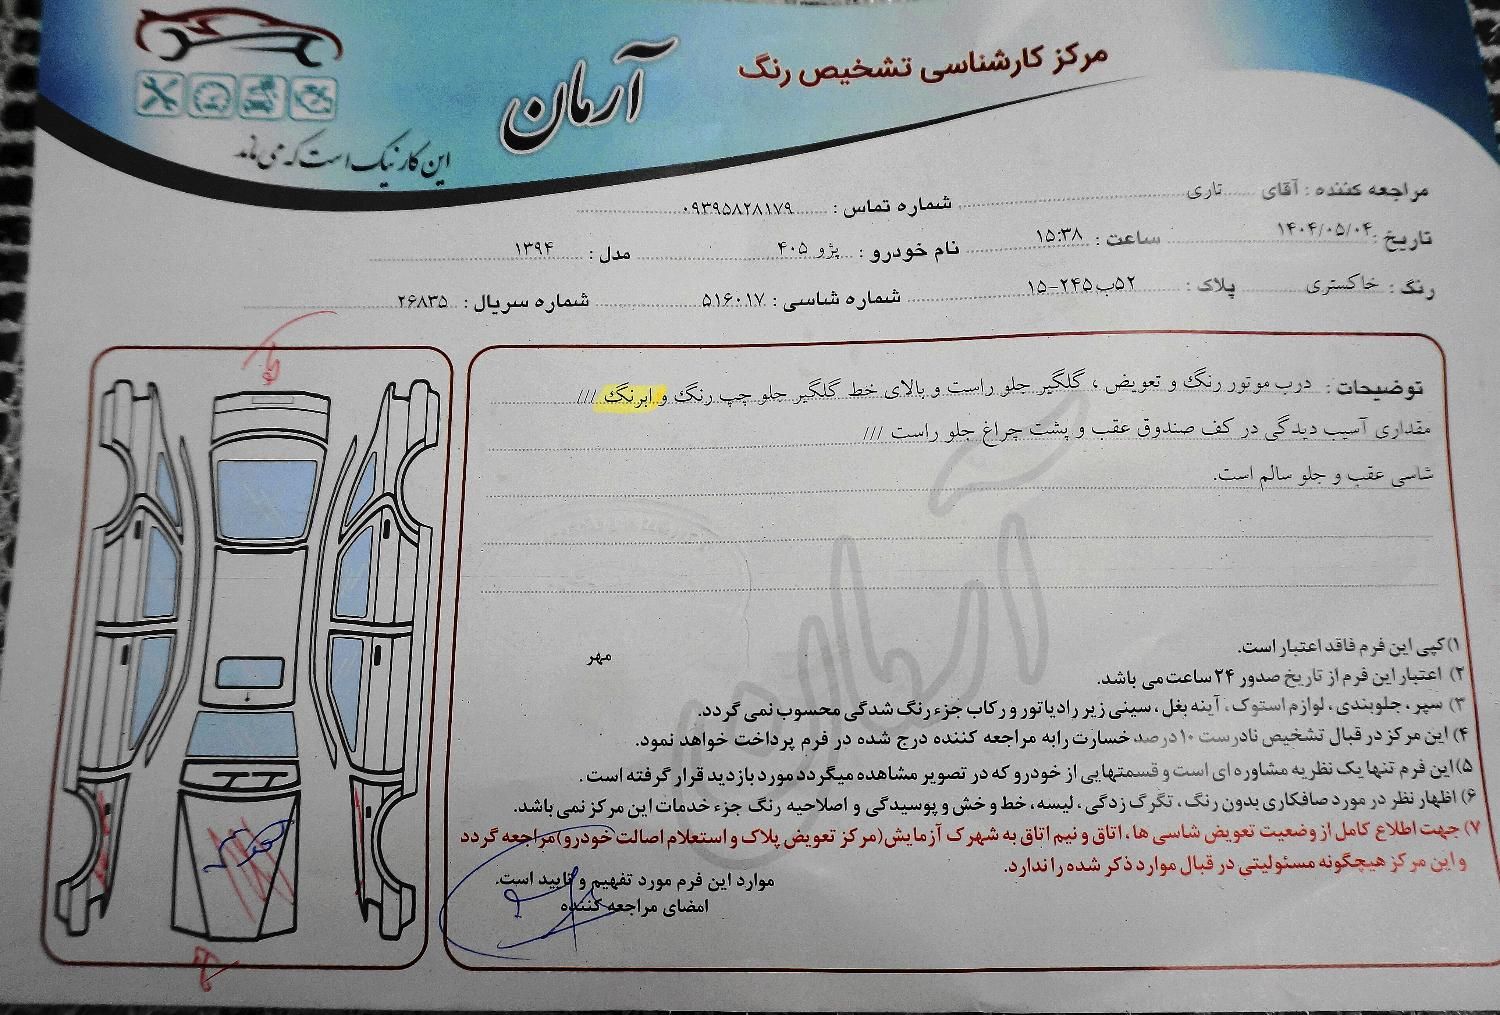 مرکز کارشناسی تشخیص رنگ
آرمان
این کار نیک است که می ماند
مراجعه کننده : آقای تاری شماره تماس : ۰۹۳۹۵۸۲۸۱۷۹
تاریخ : ۱۴۰۴/۰۵/۰۴ ساعت : ۱۵:۳۸ نام خودرو : پژو ۴۰۵ مدل : ۱۳۹۴
رنگ : خاکستری پلاک : ۵۲ب۲۴۵-۱۵ شماره شاسی : ۵۱۶۰۱۷ شماره سریال : ۲۶۸۳۵
توضیحات : درب موتور رنگ و تعویض ، گلگیر جلو راست و بالای خط گلگیر جلو چپ رنگ و ابرنگ ///
مقداری آسیب دیدگی در کف صندوق عقب و پشت چراغ جلو راست ///
شاسی عقب و جلو سالم است.
آرمان
مهر
۱) کپی این فرم فاقد اعتبار است.
۲) اعتبار این فرم از تاریخ صدور ۲۴ ساعت می باشد.
۳) سپر ، جلوبندی ، لوازم استوک ، آینه بغل ، سینی زیر رادیاتور و رکاب جزء رنگ شدگی محسوب نمی گردد.
۴) این مرکز در قبال تشخیص نادرست ۱۰ درصد خسارت را به مراجعه کننده درج شده در فرم پرداخت خواهد نمود.
۵) این فرم تنها یک نظریه مشاوره ای است و قسمتهایی از خودرو که در تصویر مشاهده میگردد مورد بازدید قرار گرفته است .
۶) اظهار نظر در مورد صافکاری بدون رنگ ، تگرگ زدگی ، لیسه ، خط و خش و پوسیدگی و اصلاحیه رنگ جزء خدمات این مرکز نمی باشد.
۷) جهت اطلاع کامل از وضعیت تعویض شاسی ها ، اتاق و نیم اتاق به شهرک آزمایش (مرکز تعویض پلاک و استعلام اصالت خودرو) مراجعه گردد
و این مرکز هیچگونه مسئولیتی در قبال موارد ذکر شده را ندارد.
موارد این فرم مورد تفهیم و تایید است.
امضای مراجعه کننده